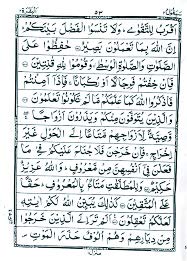 ٥٣
اَقْرَبُ لِلتَّقْوٰىؕ وَلَا تَنْسَوُا الْفَضْلَ بَيْنَكُمْؕ
اِنَّ اللّٰهَ بِمَا تَعْمَلُوْنَ بَصِيْرٌ۝ حٰفِظُوْا عَلَى
الصَّلَوٰتِ وَالصَّلٰوةِ الْوُسْطٰىۗ وَقُوْمُوْا لِلّٰهِ قٰنِتِيْنَ۝
فَاِنْ خِفْتُمْ فَرِجَالًا اَوْ رُكْبَانًاۚ فَاِذَاۤ اَمِنْتُمْ
فَاذْكُرُوا اللّٰهَ كَمَا عَلَّمَكُمْ مَّا لَمْ تَكُوْنُوْا تَعْلَمُوْنَ۝
وَالَّذِيْنَ يُتَوَفَّوْنَ مِنْكُمْ وَيَذَرُوْنَ اَزْوَاجًاۖ
وَّصِيَّةً لِّاَزْوَاجِهِمْ مَّتَاعًا اِلَى الْحَوْلِ غَيْرَ
اِخْرَاجٍۚ فَاِنْ خَرَجْنَ فَلَا جُنَاحَ عَلَيْكُمْ فِيْ مَا
فَعَلْنَ فِيْۤ اَنْفُسِهِنَّ مِنْ مَّعْرُوْفٍؕ وَاللّٰهُ عَزِيْزٌ
حَكِيْمٌ۝ وَلِلْمُطَلَّقٰتِ مَتَاعٌۢ بِالْمَعْرُوْفِؕ حَقًّا
عَلَى الْمُتَّقِيْنَ۝ كَذٰلِكَ يُبَيِّنُ اللّٰهُ لَكُمْ اٰيٰتِهٖ
لَعَلَّكُمْ تَعْقِلُوْنَ۝ اَلَمْ تَرَ اِلَى الَّذِيْنَ خَرَجُوْا
مِنْ دِيَارِهِمْ وَهُمْ اُلُوْفٌ حَذَرَ الْمَوْتِ